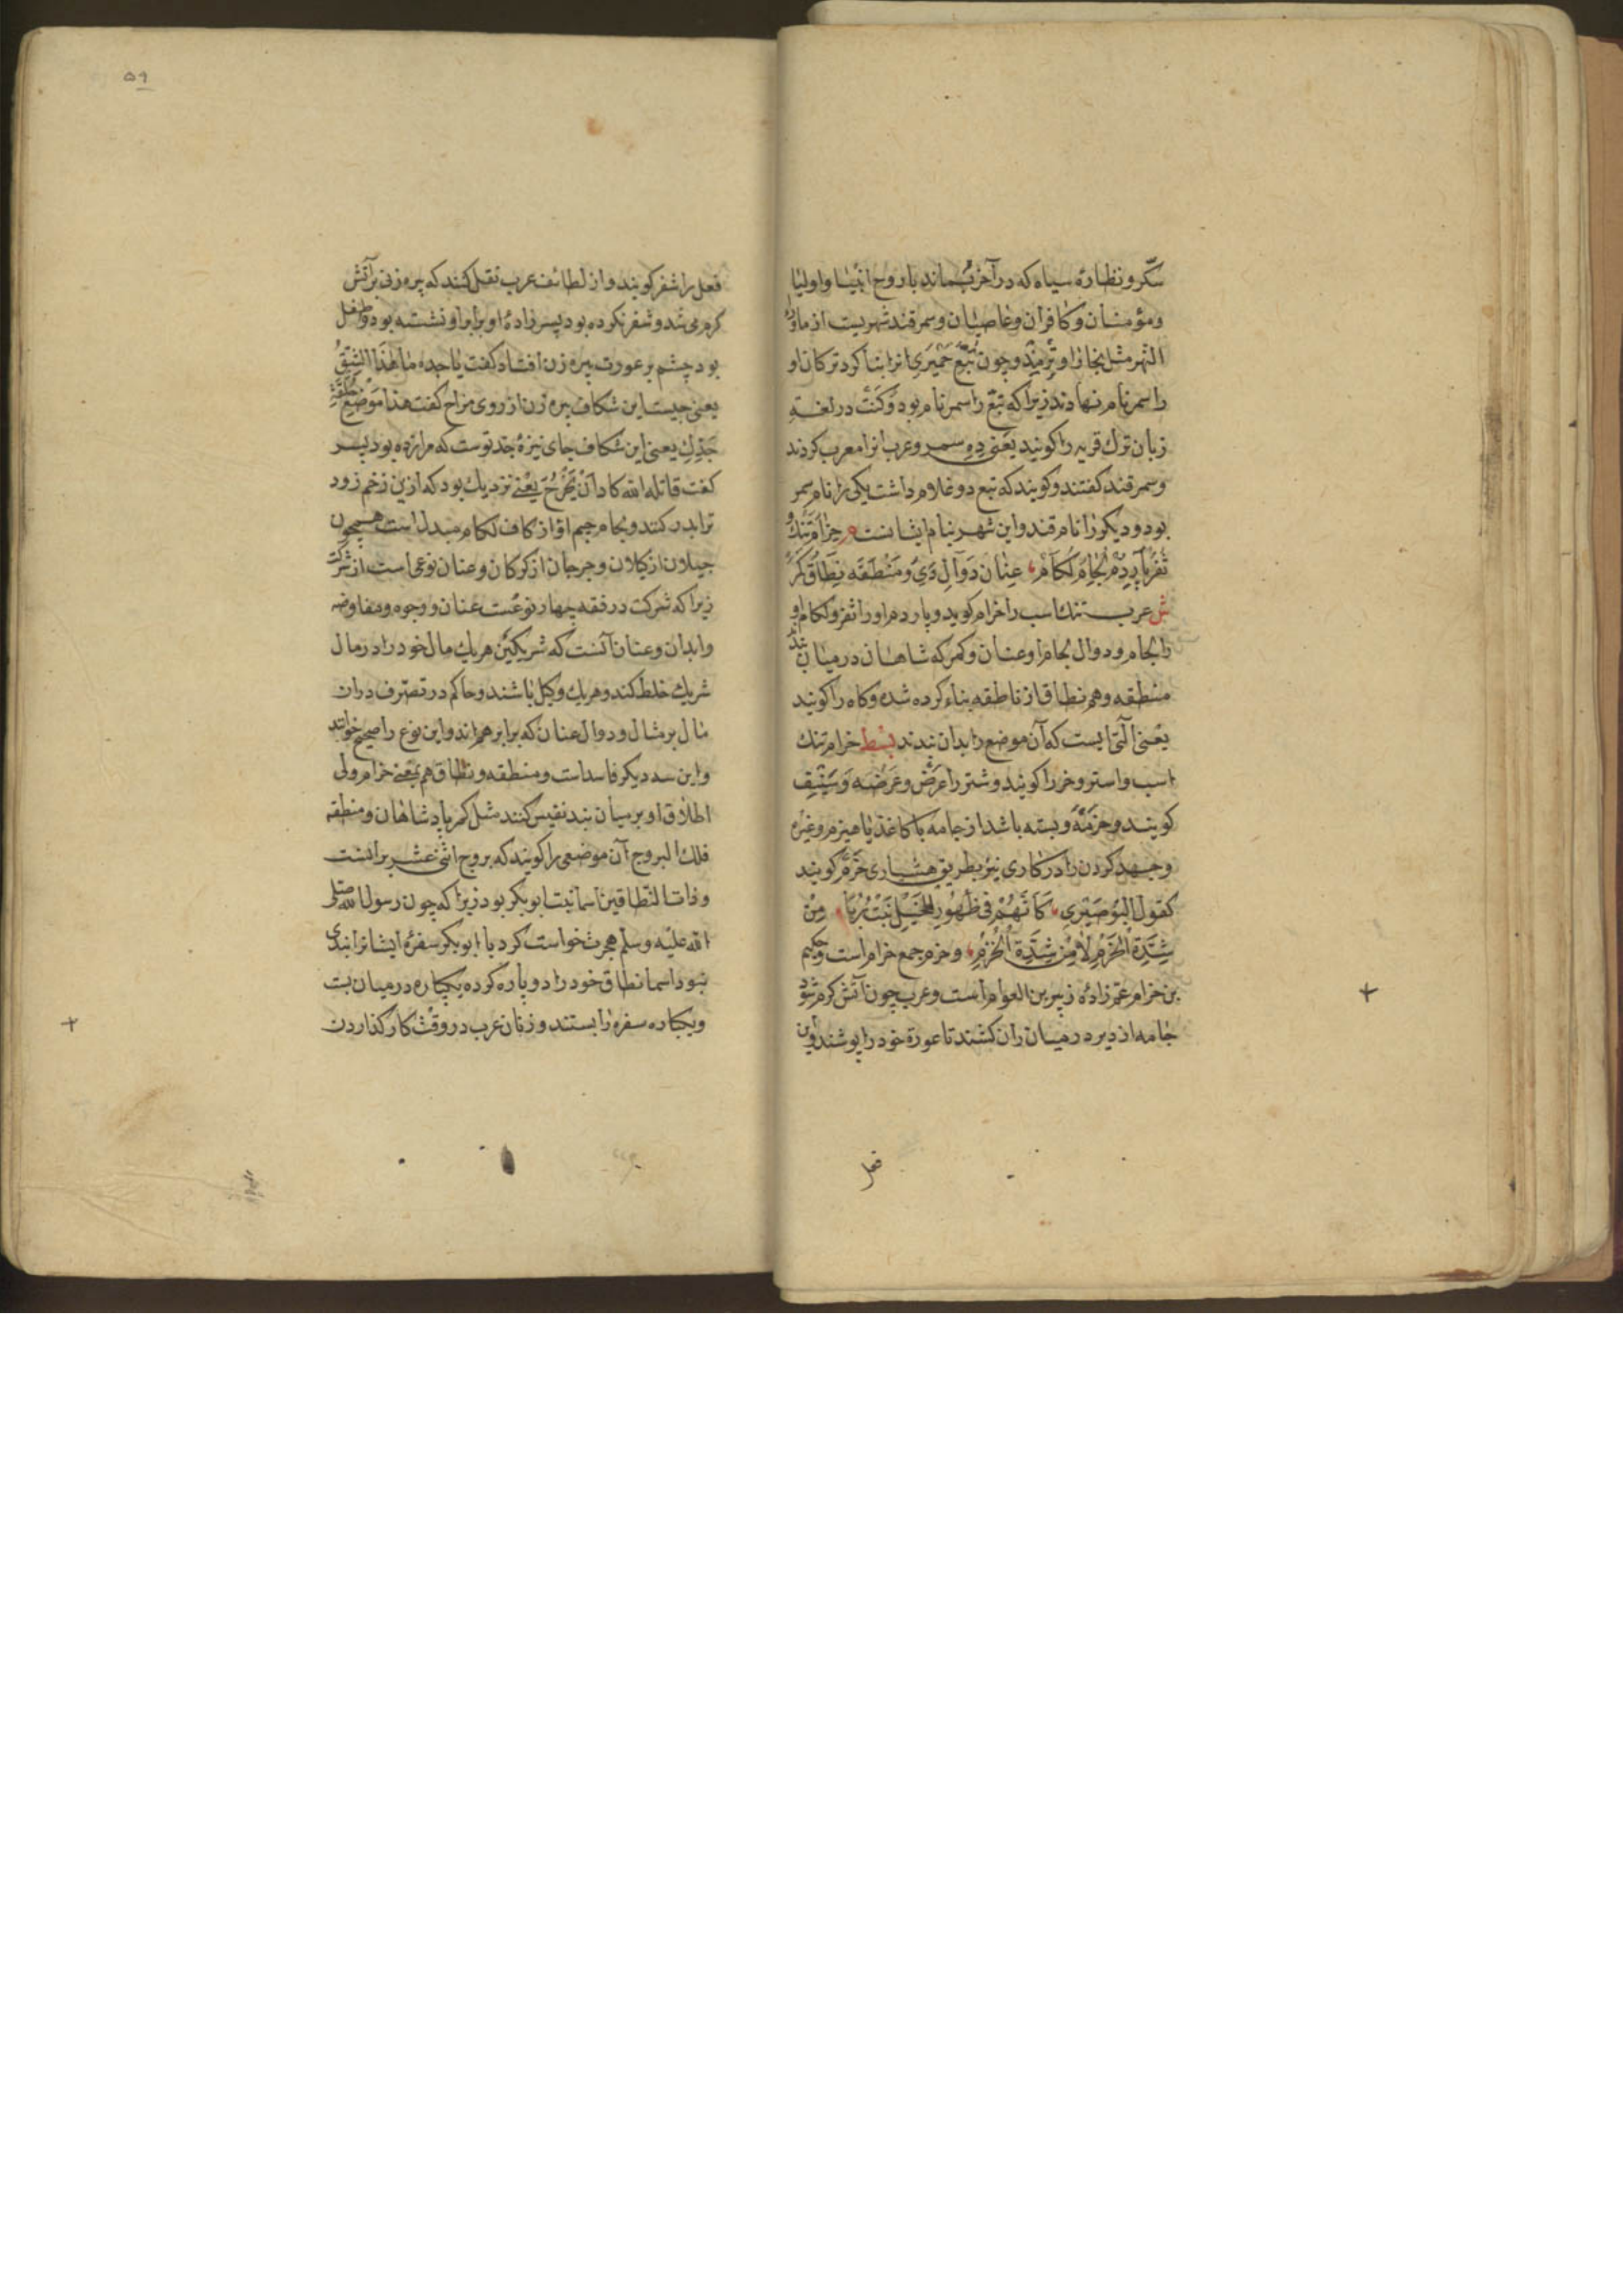 سکّر و نظاره سیاه که در آخرت بماند با روح انبیا و اولیا
و مؤمنان و کافران و عاصیان و سمرقند شهریست از ماورا
النهر مثل بخارا و ترمِذ و چون تُبَّع حِمْیَری انرا بنا کرد ترکان او
را سمر نام نهادند زیرا که تبّع را سمر نام بود و کَنْت در لغة
زبان ترک قریه را کویند یعنی دِهِ سمر و عرب انرا معرب کردند
و سمرقند کفتند و کویند که تبع دو غلام داشت یکی را نام سمر
بود و دیکر را نام قند و این شهر بنام ایشانست م حِزام تَنْک و
ثَفْر پارْدُم لجام لُکام عِنان دَوال دی و مِنْطَقَه نِطاق کَمَر
ش عرب تنک اسب را حزام کوید و پاردم او را ثفر و لکام او
را لجام و دوال لجام او عنان و کمر که شاهان در میان بندند
منطقه و هم نطاق از ناطقه بناء کرده شده وکاه را کویند
یعنی آلتی است که آن موضع را بدان بندند بسط حزام تنک
اسب و استر و خر را کویند و شتر را غَرْض و غَرْضَه و سَنِیْف
کویند و حزمةً و بسته باشد از جامه یا کاغذ یا هیزم و غیره
و جهد کردن را در کاری نیز بطریق هشیاری حَزْم کویند
کقول البُوصَیْری کَاَنَّهُمْ فی ظُهُورِ الْخَیْلِ نَبْتُ رُبًا مِنْ
شِدَّةِ الْحَزْمِ لامِنْ شِدَّةِ الْحُزُمِ و حزم جمع حزام است و حکیم
بن حزام عمزادهٔ زبیر بن العوام است و عرب چون آتش کرم شود
جامه از دبر در میان ران کشند تا عورة خود را پوشند و این
فعل
۵۹
فعل را ثفر کویند و از لطائف عرب نقل کنند که پیره زنی بر آتش
کرم می شد و ثفر نکرده بود پسرزادهٔ او برابر او نشسته بود و طفل
بود چشم بر عورت پیره زن افتاد کفت یا جده ما هٰذا الشِّقُّ
یعنی چیست این شکاف پیره زن از روی مزاح کفت هذا مَوْضِعُ طَعْنَةِ
جَدِّكَ یعنی این شکاف جای نیزهٔ جد توست که مرا زده بود پسر
کفت قاتله الله کاد اَنْ یخرج یعنی نزدیک بود که از ین زخم زود
ترا بدر کند و لجام جیم او از کاف لکام مبدل است همچون
جیلان از کیلان و جرجان از کرکان و عنان نوعی است از شرکت
زیرا که شرکت در فقه چهار نوعست عنان و وجوه و مفاوضه
و ابدان و عنان آنست که شریکین هریک مال خود را در مال
شریک خلط کند و هریک وکیل باشند و حاکم در تصرف دران
مال بر مثال دو دوال عنان که برابر هم اند و این نوع را صحیح خوانند
و این سه دیکر فاسد است و منطقه و نطاق هم بمعنی حزام ولی
اطلاق او بر میان بند نفیس کنند مثل کمر پادشاهان و منطقه
فلك البروج آن موضعی را کویند که بروج اثنی عشر برانست
و ذات النطاقین اسما بنت ابوبکر بود زیرا که چون رسول الله صلی
الله علیه و سلم هجرت خواست کرد با ابوبکر سفرهٔ ایشانرا بندی
نبود اسما نطاق خود را دو پاره کرده یکپاره در میان بست
و یکپاره سفره را بستند و زنان عرب در وقت کار کذاردن